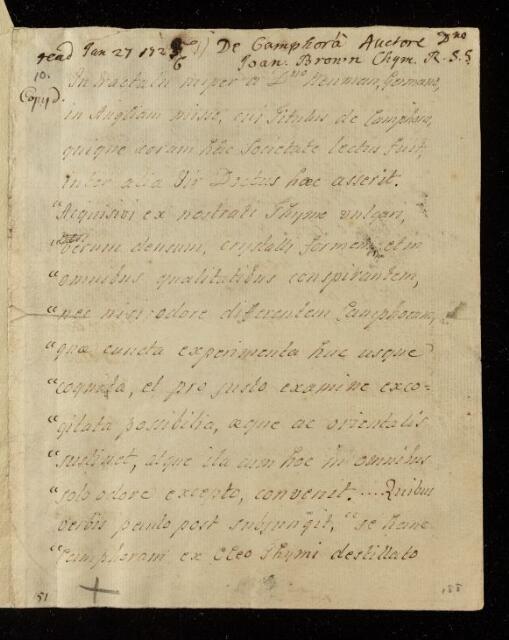 read Jan 27 172 De Camphorâ Auctore Dno
6 Joan. Brown Chym. R. S. S.
10.
Copyd.
In tractatu nuper a Dno Neuman, Germano,
in Angliam misso, cui Titulus de Camphora,
quique coram hac Societate lectus fuit,
inter alia Vir Doctus hæc asserit.
"Acquisivi ex nostrati Thymo vulgari,
"verum densum, crystalli formem, et in
"omnibus qualitatibus conspirantem,
"nec nisi odore differentem Camphoram,
"quæ cuncta experimenta huc usque
"cognita, et pro justo examine exco-
"gitata possibilia, æque ac orientalis
"sustinet, atque ita cum hoc in omnibus
"solo odore excepto, convenit. .... Quibus
verbis paulo post subjungit, "se hanc
"Camphoram ex Oleo Thymi destillato
51
155